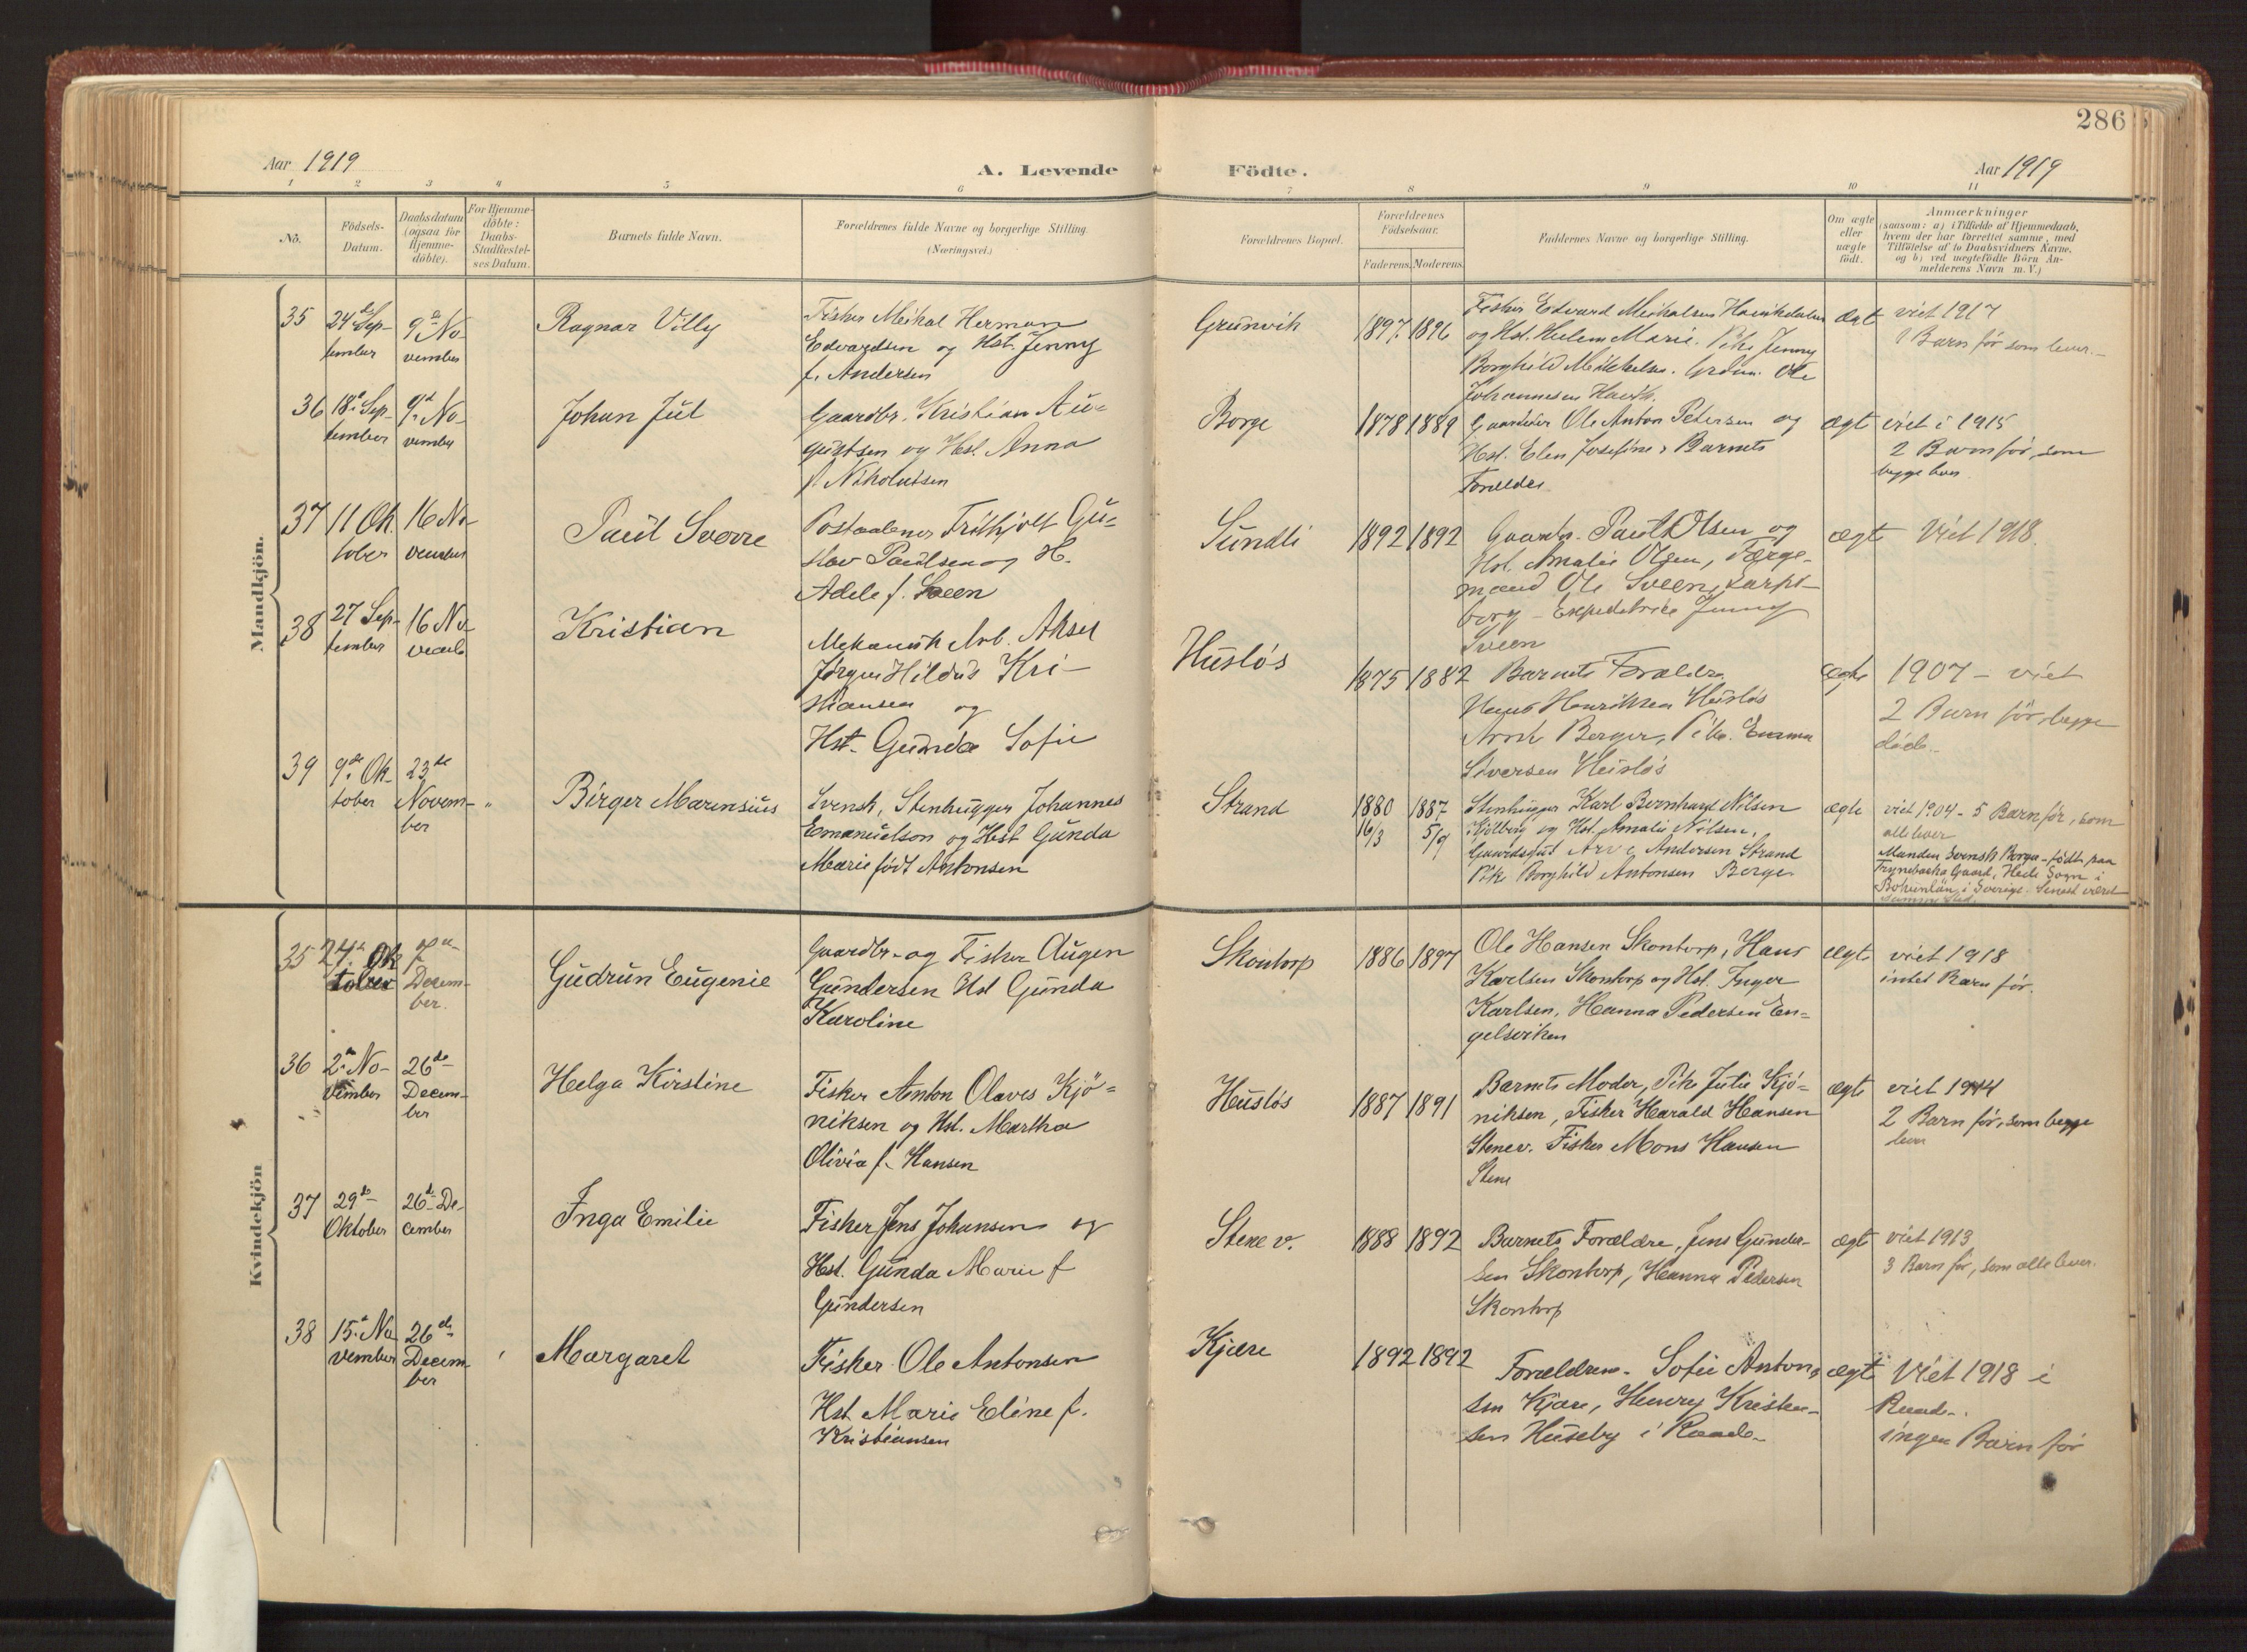 286
Aar 1919
A. Levende
Födte.
Aar 1919
1 2 3 4 5 6 7 8 9 10 11
No.
Födsels-
Datum.
Daabsdatum
(ogsaa for
Hjemme-
döbte).
For Hjemme-
döbte:
Daabs-
Stadfæstel-
ses Datum.
Barnets fulde Navn.
Forældrenes fulde Navne og borgerlige Stilling.
(Næringsvei.)
Forældrenes Bopæl.
Forældrenes
Födselsaar.
Faderens. Moderens.
Faddernes Navne og borgerlige Stilling.
Om ægte
eller
uægte
födt.
Anmærkninger
(saasom: a) i Tilfælde af Hjemmedaab,
hvem der har forrettet samme, med
Tilföielse af to Daabsvidners Navne,
og b) ved uægtefödte Börn An-
melderens Navn m. V.)
Mandkjön.
35
24de Sep-
tember
9de No-
vember
Ragnar Villy
Fisker Meikal Herman
Edvardsen og Hst. Jenny
f. Andersen
Grunvik
1897. 1896
Fisker Edvard Meikalsen
og Hst. Helem Marie. Pike Jenny
Borghild. Ole
Johannesen
ægt
viet 1917
1 Barn før som lever.-
36
18de Sep-
tember
9de No-
vember
Johan Jul
Gaardbr. Kristian Au-
gustsen og Hst. Anna
f. Nikolaisen
Borge
1878 1889
Ole Anton Petersen og
Hst. Elen Josefine, Barnets
Forældre
ægt
viet i 1915
2 Barn før, som
begge lever
37
11 Ok.
tober
16 No-
vember
Paul Sverre
Postaabner Frithjolt Gu-
stav Paulsen og H.
Adele f. Sveen
Sundli
1892 1892
Gaardbr. Paul Olsen og
Hst. Amalie Olsen, Færge-
mand Ole Sveen, Sarps-
borg - Expeditrice Jenny
Sveen
ægt
Viet 1918.
38
27 Sep-
tember
16 No-
vemb
Kristian
Mekanisk Arb. Aksel
Jørgen Hildus Kri-
stiansen og
Hst. Gunda Sofie
Husløs
1875 1882
Barnets Forældre
Henriksen Husløs
Berger, Pike. Emma
Siversen Husløs
ægte
1907 - viet
2 Barn før, begge
døde.-
39
9de Ok-
tober
23de
Novem-
ber
"
Birger Marensius
Svensk, Stenhugger Johannes
Emanuelson og Hst Gunda
Marie født Antonsen
Strand
1880 1887
16/3 5/9
Stenhugger Karl Bernhard Nilsen
Kjølberg og Hst. Amalie Nilsen,
Gaardsgut Arve Andersen Strand
Pike Borghild Antonsen Borge
ægte
viet 1904 - 5 Barn før, som
alle lever
Manden Svensk Borger - født paa
Gaard, Hede Sogn i
Bohuslän, i Sverige. Senest
Kvindekjön
35
24de Ok
tober
7de
Decem-
ber.
Gudrun Eugenie
Gaardbr. og Fisker Augen
Gundersen Hst Gunda
Karoline
Skontorp
1886 1897
Ole Hansen Skontorp, Hans
Karlsen Skontorp og Hst. Inger
Karlsen, Hanna Pedersen En-
gelsviken
ægt
viet 1918
intet Barn før.
36
2de No-
vember
26de
Decem-
ber
Helga Kirstine
Fisker Anton Olaves Kjø-
niksen og Hst. Martha
Olivia f. Hansen
Husløs
1887 1891
Barnets Moder, Pike Julie Kjø-
niksen, Fisker Harald Hansen
Stenev. Fisker Mons Hansen
Stene
ægt
viet 1914
2 Barn før, som begge
lever
37
29de
Oktober
26de De-
cember
Inga Emilie
Fisker Jens Johansen og
Hst. Gunda Marie f
Gundersen
Stene v.
1888 1892
Barnets Forældre, Jens Gunder-
sen Skontorp, Hanna Pedersen
Skontorp
ægt
viet 1913
3 Barn før, som alle lever.
38
15de No
vember
26de
Decem-
ber
Margaret
Fisker Ole Antonsen
Hst Marie Eline f.
Kristiansen
Kjære
1892 1892
Forældrene. Sofie Anton-
sen Kjære, Henry Kristen-
sen Huseby i Raade
ægt
Viet 1918 i
Raade.
ingen Barn før